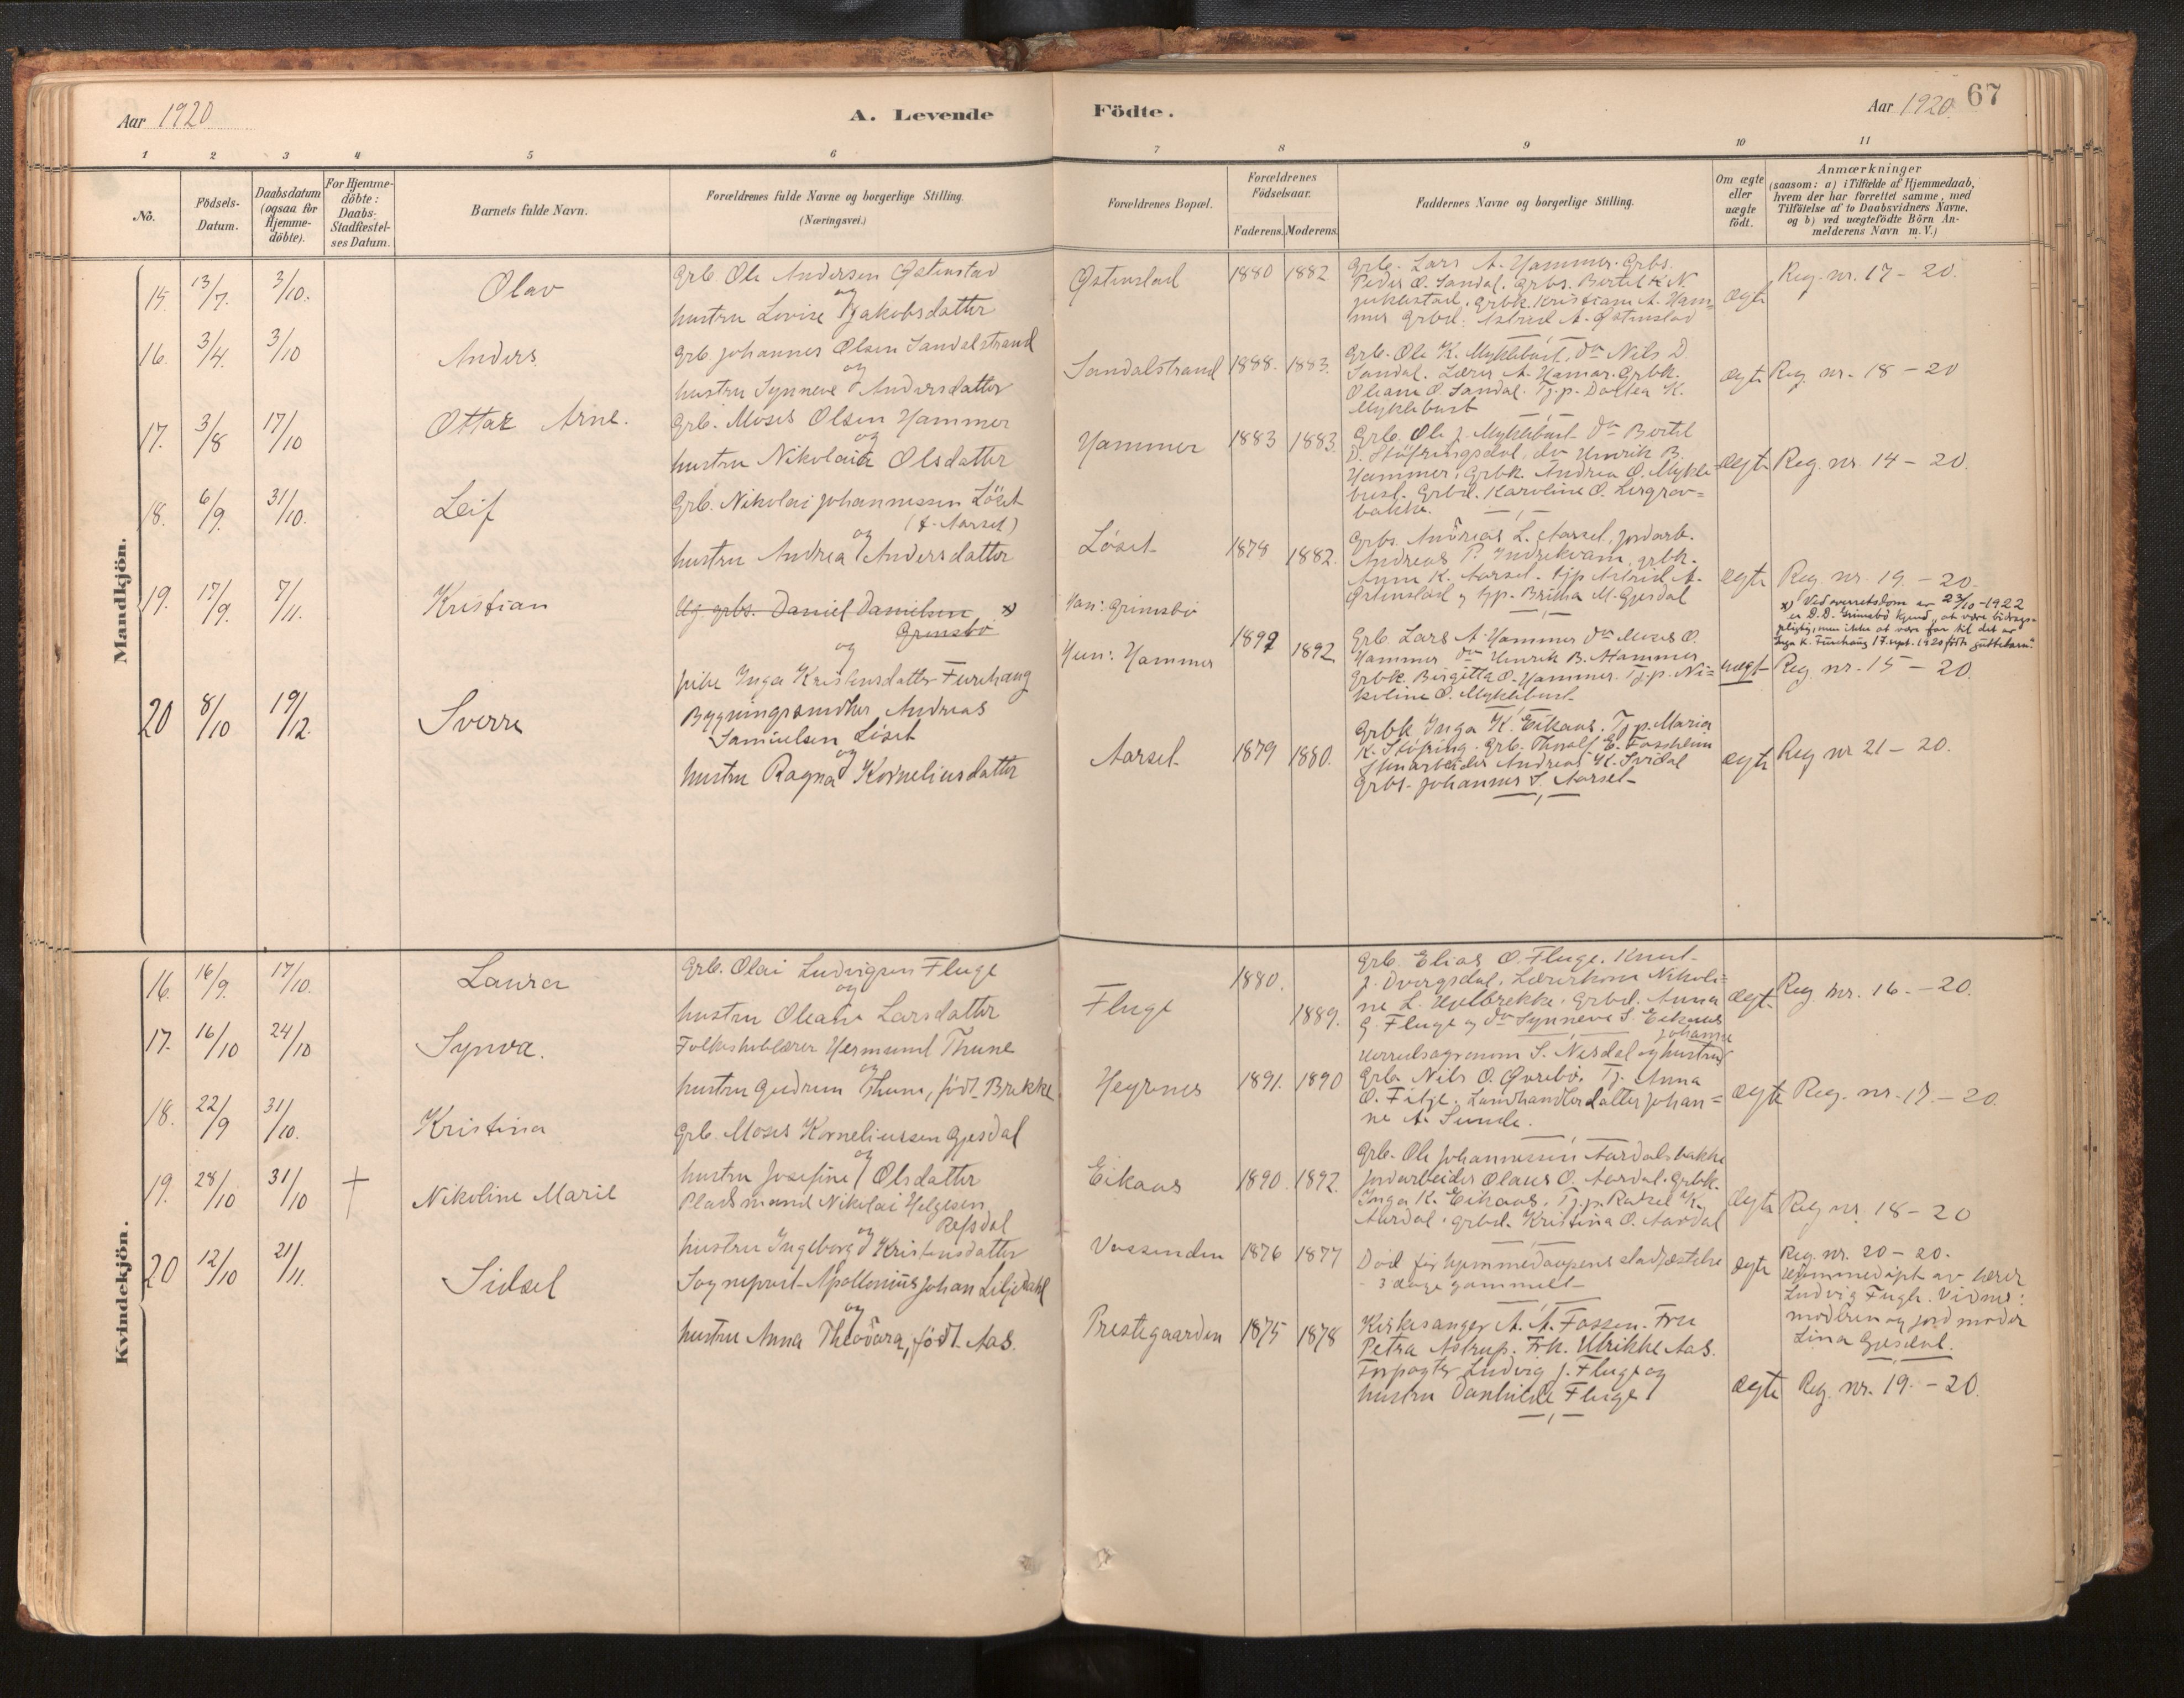 Aar 1920
A. Levende Födte.
Aar 1920. 67
1 2 3 4 5 6 7 8 9 10 11
No.
Födsels-Datum.
Daabsdatum (ogsaa for Hjemme-döbte).
For Hjemme-döbte: Daabs-Stadfæstel-ses Datum.
Barnets fulde Navn.
Forældrenes fulde Navne og borgerlige Stilling.
(Næringsvei.)
Forældrenes Bopæl.
Forældrenes Födselsaar.
Faderens. Moderens.
Faddernes Navne og borgerlige Stilling.
Om ægte eller uægte födt.
Anmærkninger
(saasom: a) i Tilfælde af Hjemmedaab,
hvem der har forrettet samme, med
Tilföielse af to Daabsvidners Navne,
og b) ved uægtefödte Börn An-
melderens Navn m. V.)
Mandkjön.
15. 13/7. 3/10. Olav
Grb. Ole Andersen Østenstad
og
hustru Lovise Jakobsdatter
Østenstad 1880 1882
Grb. Lars A. Hammer. Grbs.
Peder O. Sandal. Grbs. Bertel N.
Jyklestad. Grbk. Kristiane A. Ham=
mer Grbd. Astrid A. Østenstad
ægte Reg. nr. 17 - 20.
16. 3/4. 3/10 Anders
Grb. Johannes Olsen Sandalstrand
og
hustru Synneve Andersdatter
Sandalstrand 1888. 1883.
Grb. Ole K. Myklebust. do Nils D.
Sandal. Lærer A. Hamar. Grbk.
Oliane O. Sandal. Tj.p. Dortea K.
Myklebust
ægte Reg. nr. 18 - 20
17. 3/8 17/10 Ottar Arne.
Grb. Moses Olsen Hammer
og
hustru Nikolaia Olsdatter
Hammer 1883 1883.
Grb. Ole J. Myklebust do Bertel
D. Støfringsdal, do Henrik B.
Hammer, Grbk. Andrea O. Mykle
bust. Grbd. Karoline O. Lergrov=
bakke.
ægte Reg. nr. 14 - 20.
18. 6/9. 31/10. Leif
Grb. Nikolai Johannessen Löset
(f. Aarset)
og
hustru Andrea Andersdatter
Løset 1878 1882.
Grbs. Andreas L. Aarset, jordarb.
Andreas P. Indrekvam, grbk.
Anna K. Aarset. tjp Astrid A.
Østenstad og tjp. Brita M. Gjesdal
ægte Reg. nr. 19. - 20.
19. 17/9. 7/11. Kristian
Ug. grbs. Daniel Danielsen x)
Grimsbö
og
pike Inga Kristensdatter Furehaug
Han: Grimsbö
Hun: Hammer 1897 1892
Grb. Lars A. Hammer do Moses O.
Hammer do Henrik B. Hammer
Grbk. Birgitta O. Hammer. Tj.p. Ni=
koline O. Myklebust
uægt
x) Ved overretsdom av 23/10-1922
er D. D. Grimsbö kjend, at være bidrags-
pligtig, men ikke at være far til det av
Inga K. Furehaug 17. sept. 1920 fødte guttebarn.
Reg. nr. 15 - 20.
20 8/10 19/12. Sverre
Bygningssnedker Andreas
Samuelsen Löset
og
hustru Ragna Korneliusdatter
Aarset 1879 1880.
Grbk Inga K. Eikaas. Tj.p. Maria
K. Støfring. Grb. Thoralf E. Fossheim
Stenarbeider Andreas K. Svidal
Grbs. Johannes S. Aarset
ægte Reg nr 21 - 20.
Kvindekjön.
16. 16/9. 17/10. Laura
Grb. Olai Ludvigsen Fluge
og
hustru Oleane Larsdatter
Fluge 1880. 1889.
Grb. Elias O. Fluge. Knut
J. Dvergsdal. Lærerkone Nikoli=
ne L. Hjelbrekke. Grbd. Anna
G. Fluge og do Synneve S. Eikaas
ægte Reg. nr. 16. - 20.
17. 16/10 24/10 Synva.
Folkeskolelærer Hermund Thune
og
hustru Gudrun Thune, født Brekke
Heyrnes 1891. 1890
Johanne
Herredsagronom S. Nesdal og hustru
Grb. Nils O. Øvrebö. Tj. Anna
O. Fitje. Landhandlerdatter Johan=
ne A. Sunde.
ægte Reg. nr. 17. - 20.
18. 22/9 31/10. Kristina
Grb. Moses Korneliussen Gjesdal
og
hustru Josefine Olsdatter
Eikaas 1890. 1892.
Grb. Ole Johannessen Aardalsbakke
Jordarbeider Olaus O. Aardal. Grbk.
Inga K. Eikaas. Tj.p. Rakel K.
Aardal. Grbd. Kristina O. Aardal
ægte Reg nr. 18 - 20
19. 28/10 31/10 † Nikoline Marie
Pladsmand Nikolai Helgesen
Refsdal
og
hustru Ingeborg Kristensdatter
Vassenden 1876 1877
Död för hjemmedaapens stadfæstelse
- 3 dage gammel -
ægte Reg. nr. 20 - 20.
Hjemmedöpt av lærer
Ludvig Fugle. Vidner:
moderen og jordmoder
Lina Gjesdal.
20 12/10 21/11. Sidsel
Sogneprest Apollonius Johan Liljedahl
og
hustru Anna Theodora, född. Aas.
Prestegaarden 1875 1878
Kirkesanger A. A. Fossen. Fru
Petra Astrup. Frk. Ulrikke Aas.
Forpagter Ludvig J. Fluge og
hustru Danhilde Fluge
ægte Reg. nr. 19. - 20.